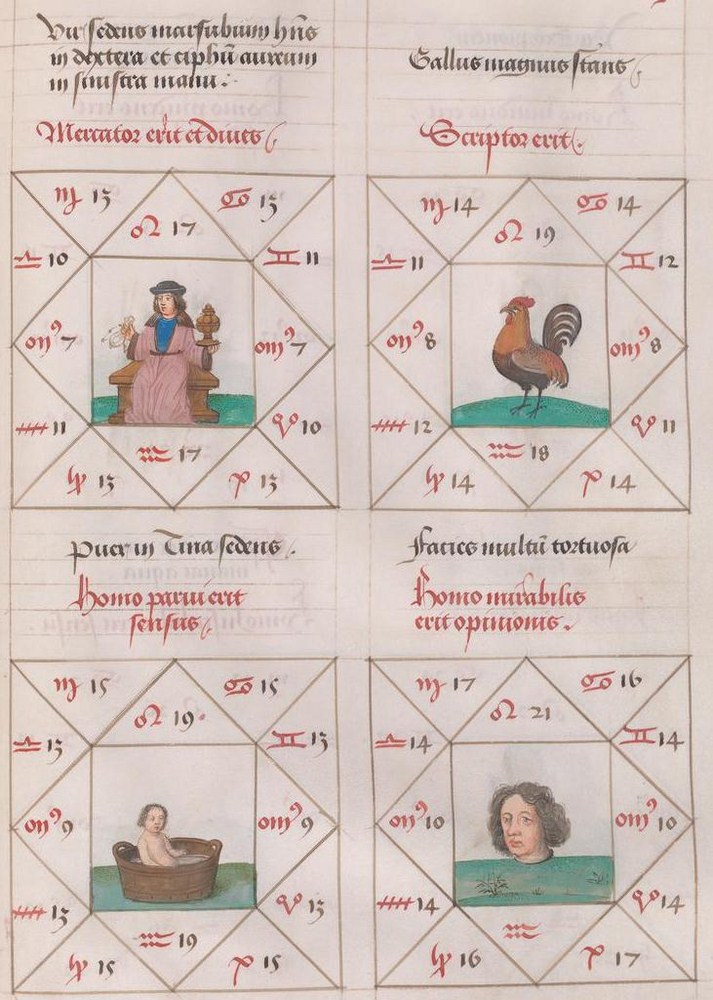 Vir sedens marsubium hñs
in dextera et ciphũ aureum
in sinistra manu :
Mercator erit et diues
♍ 13
♋ 13
♌ 17
♎ 10
♊ 11
7
7
11
♉ 10
17
13
13
Gallus magnus stans
Scriptor erit
♍ 14
♋ 14
♌ 19
♎ 11
♊ 12
8
8
12
♉ 11
18
14
14
Puer in Tina sedens .
Homo parui erit
sensus
♍ 15
♋ 15
♌ 19
♎ 13
♊ 13
9
9
13
♉ 13
19
15
15
Facies multũ tortuosa
Homo mirabilis
erit opinionis .
♍ 17
♋ 16
♌ 21
♎ 14
♊ 14
10
10
14
♉ 14
16
17